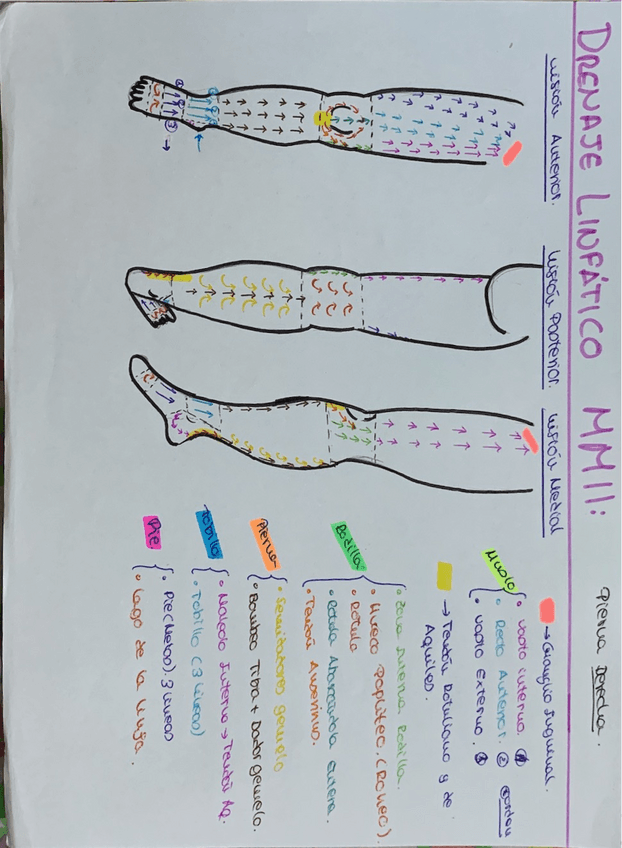 DRENAJE LINFÁTICO MMII:
Pierna Derecha.
Visión Anterior.
Visión Posterior.
Visión Medial
→ Ganglio Inguinal.
Muslo
• Vasto interno. ①
• Recto Anterior. ② orden
• Vasto Externo. ③
→ Tendón Rotuliano y de
Aquiles.
Rodilla
• Zona Interna Rodilla.
• Hueco Poplíteo. (Bombeo).
• Rótula
• Rótula Abarcándola entera.
• Tendón Anserinus.
Pierna
• Semirotadores gemelo
• Bombeo Tibia + Dador gemelo.
Tobillo
• Maleolo Interno → Tendón Aq.
• Tobillo (3 líneas)
Pie
• Pie (Metas). 3 líneas
• Lago de la linfa.